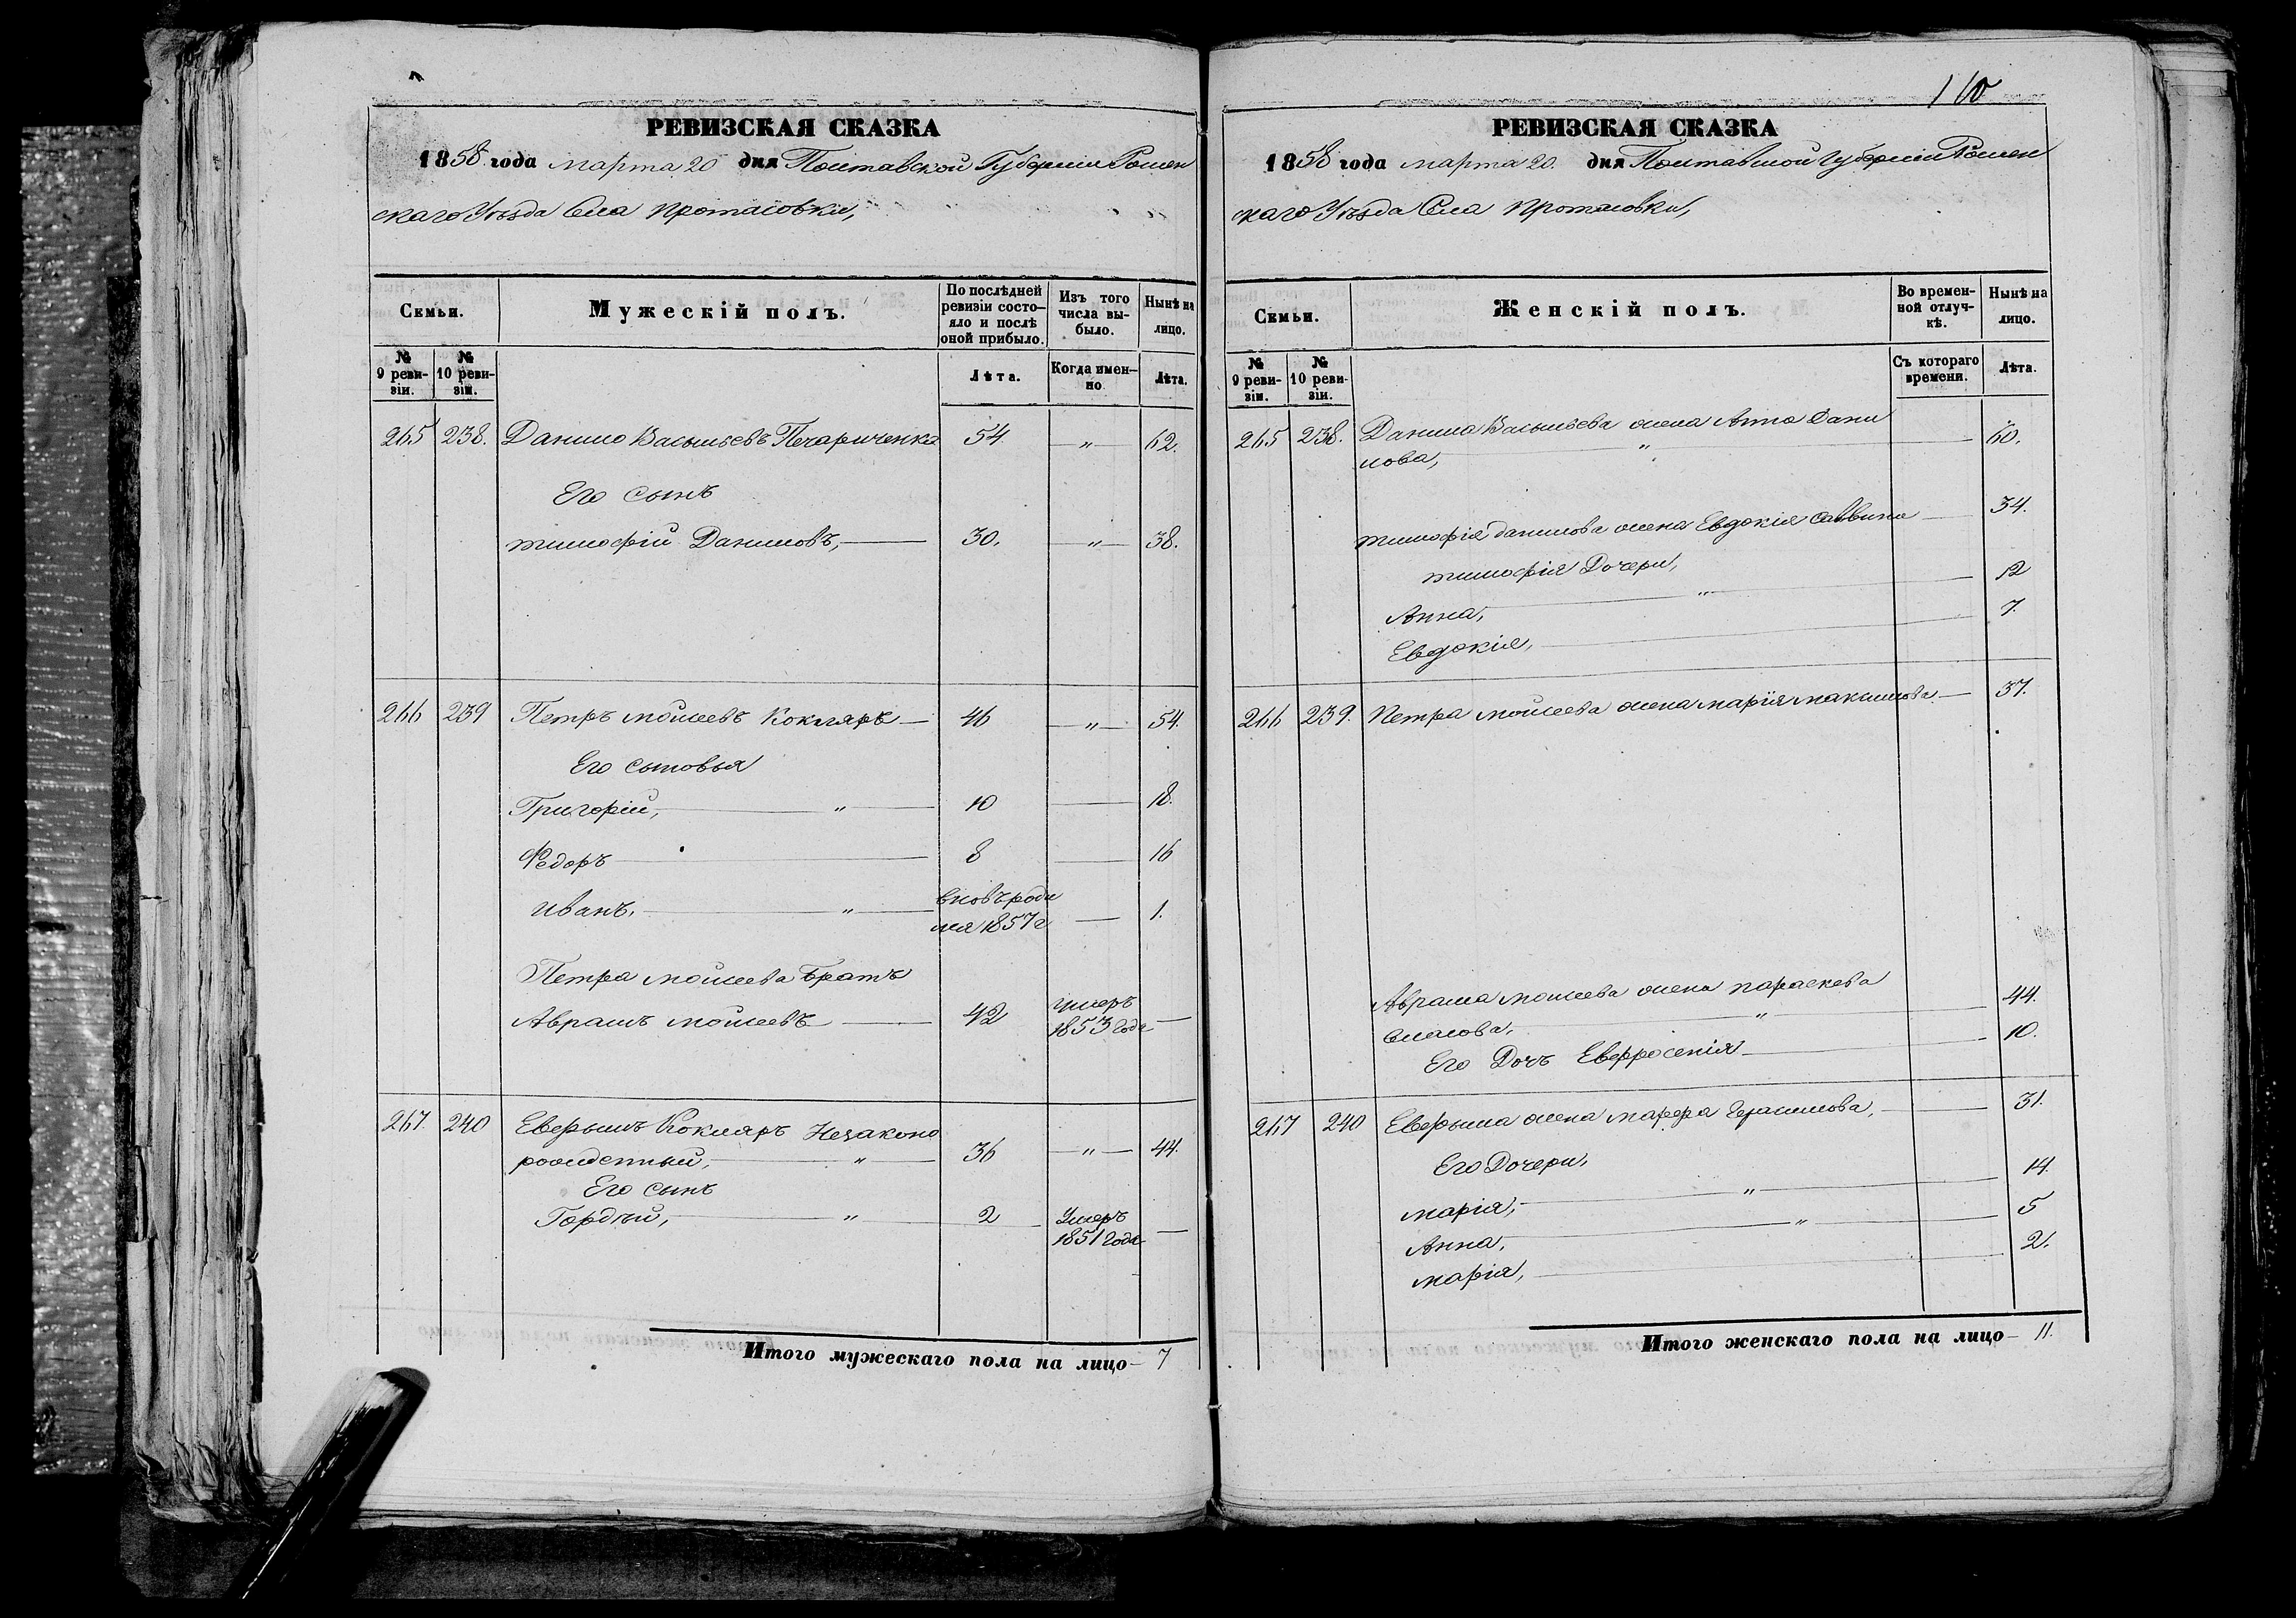 РЕВИЗСКАЯ СКАЗКА
1858 года марта 20 дня Полтавской Губерніи Ромен
скаго Уѣзда Села Протасовки,
Семьи.
Мужескій полъ.
По послѣдней ревизіи состо-
яло и послѣ
оной прибыло.
Изъ того
числа вы-
было.
Нынѣ на
лицо.
№ 9 реви-
зіи.
№ 10 реви-
зіи.
Лѣта.
Когда имен-
но
Лѣта.
265 238. Данило Васильевъ Печариченко 54 " 62.
Его сынъ
тимофій Даниловъ, 30. " 38.
266 239 Петръ мойсеевъ Кокляръ 46 " 54.
Его сыновья
Григорій, " 10 18.
Федоръ 8 16
иванъ, " вновь роди
лся 1857 г 1.
Петра мойсеева братъ
Аврамъ мойсеевъ 42 умеръ
1853 Года
267. 240 Еверымъ Кокляръ Незаконо
рожденный, " 36 " 44.
Его сынъ
Гордѣй, " 2 Умеръ
1851 Года
Итого мужескаго пола на лицо 7
110
РЕВИЗСКАЯ СКАЗКА
1858 года марта 20. дня Полтавской Губерніи Ромен
скаго Уѣзда Села Протасовки,
Семьи.
Женскій полъ.
Во времен-
ной отлуч-
кѣ.
Нынѣ на
лицо.
№ 9 реви-
зіи.
№ 10 реви-
зіи.
Съ котораго
времени.
Лѣта.
265 238. Данила Васильева жена Анна Дани
лова, " 60.
тимофія данилова жена Евдокія Саввина 34.
тимофія Дочери,
Анна, " 12
Евдокія, 7.
266 239. Петра мойсеева жена марія максимова 37.
Аврама мойсеева жена параскева
власова, " 44.
Его Дочь Евфросенія 10.
267 240 Еверыма жена марфа Герасимова, 31.
Его Дочери,
марія, " 14.
Анна, " 5
марія, 2.
Итого женскаго пола на лицо 11.